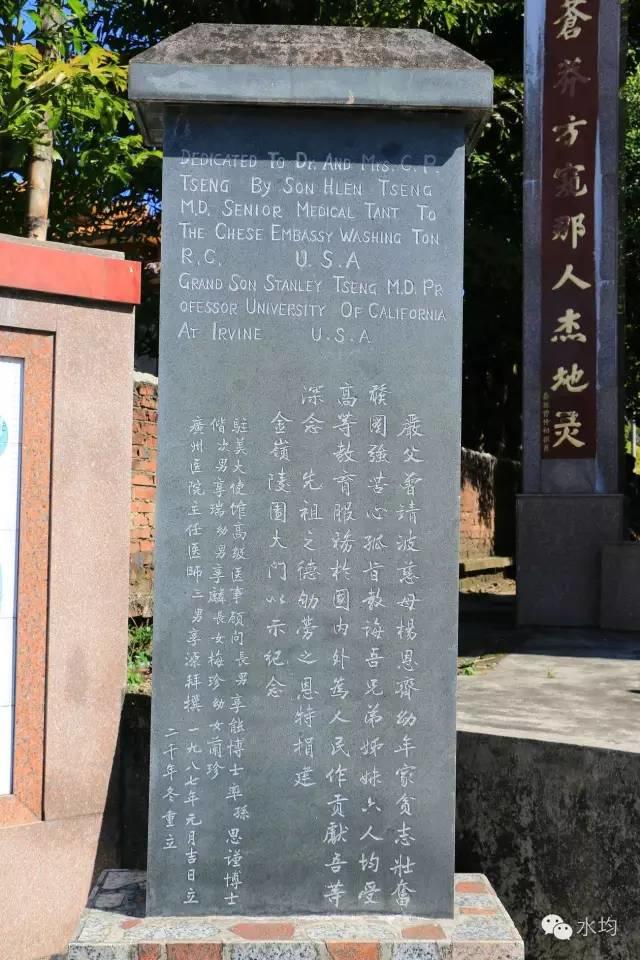 DEDICATED TO DR. AND MRS. C. P.
TSENG BY SON HLEN TSENG
M.D. SENIOR MEDICAL TANT TO
THE CHESE EMBASSY WASHING TON
R.C. U.S.A
GRAND SON STANLEY TSENG M.D. PR
OFESSOR UNIVERSITY OF CALIFORNIA
AT IRVINE U.S.A
嚴父曾靖波慈母楊恩齊幼年家贫志壯奮
發圖強苦心孤旨教誨吾兄弟姊妹六人均受
高等教育服務於國内外為人民作貢獻吾等
深念先祖之德劬劳之恩特捐建
金嶺陵園大门以示纪念
駐美大使馆高级医事顾问長男享能博士率孫思谨博士
偕次男享瑞幼男享麟長女梅珍幼女蘭珍
廣州医院主任医師三男享源拜撰一九八七年元月吉日立
二千年冬重立
蒼莽方窺那人杰地灵
水均